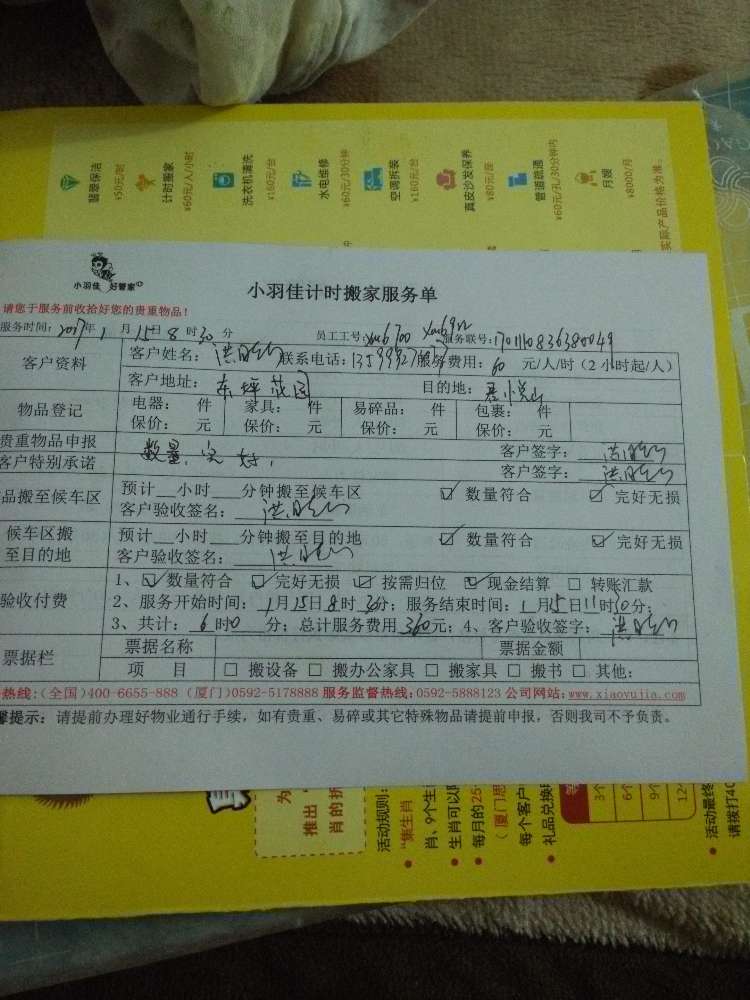 翡翠保洁
¥50元/时
计时搬家
¥60元/人/小时
洗衣机清洗
¥160元/台
水电维修
¥60元/30分钟
空调拆装
¥160元/台
真皮沙发保养
¥80元/座
管道疏通
¥60元/孔/30分钟内
月嫂
¥8000/月
实际产品价格为准。
小羽佳 好管家
小羽佳计时搬家服务单
请您于服务前收拾好您的贵重物品！
服务时间：2017年1月15日8时30分 员工工号：xm6700 服务联号：
客户资料 客户姓名： 联系电话： 服务费用：60 元/人/时（2小时起/人）
客户地址：东坪花园 目的地：君悦山
物品登记 电器： 件 家具： 件 易碎品： 件 包裹： 件
保价： 元 保价： 元 保价： 元 保价： 元
贵重物品申报 数量，完好， 客户签字：
客户特别承诺 客户签字：
品搬至候车区 预计__小时___分钟搬至候车区 ☑ 数量符合 ☑ 完好无损
客户验收签名：
候车区搬至目的地 预计__小时___分钟搬至目的地 ☑ 数量符合 ☑ 完好无损
客户验收签名：
验收付费 1、☑数量符合 ☑完好无损 ☑按需归位 ☑现金结算 □ 转账汇款
2、服务开始时间：1月15日8时30分；服务结束时间：1月15日11时30分；
3、共计：6时0分；总计服务费用360元；4、客户验收签字：
票据栏 票据名称 票据金额
项 目 □ 搬设备 □ 搬办公家具 □ 搬家具 □ 搬书 □ 其他:
热线:(全国)400-6655-888 (厦门)0592-5178888 服务监督热线:0592-5888123 公司网站:www.xiaoyujia.com
馨提示：请提前办理好物业通行手续，如有贵重、易碎或其它特殊物品请提前申报，否则我司不予负责。
为
推出
肖的折
活动规则：
• "集生肖
肖、9个生
• 生肖可以
• 每月的25
（厦门思
每个客户
• 礼品兑换
3个
6个
9个
12个
• 活动最终
请拨打40